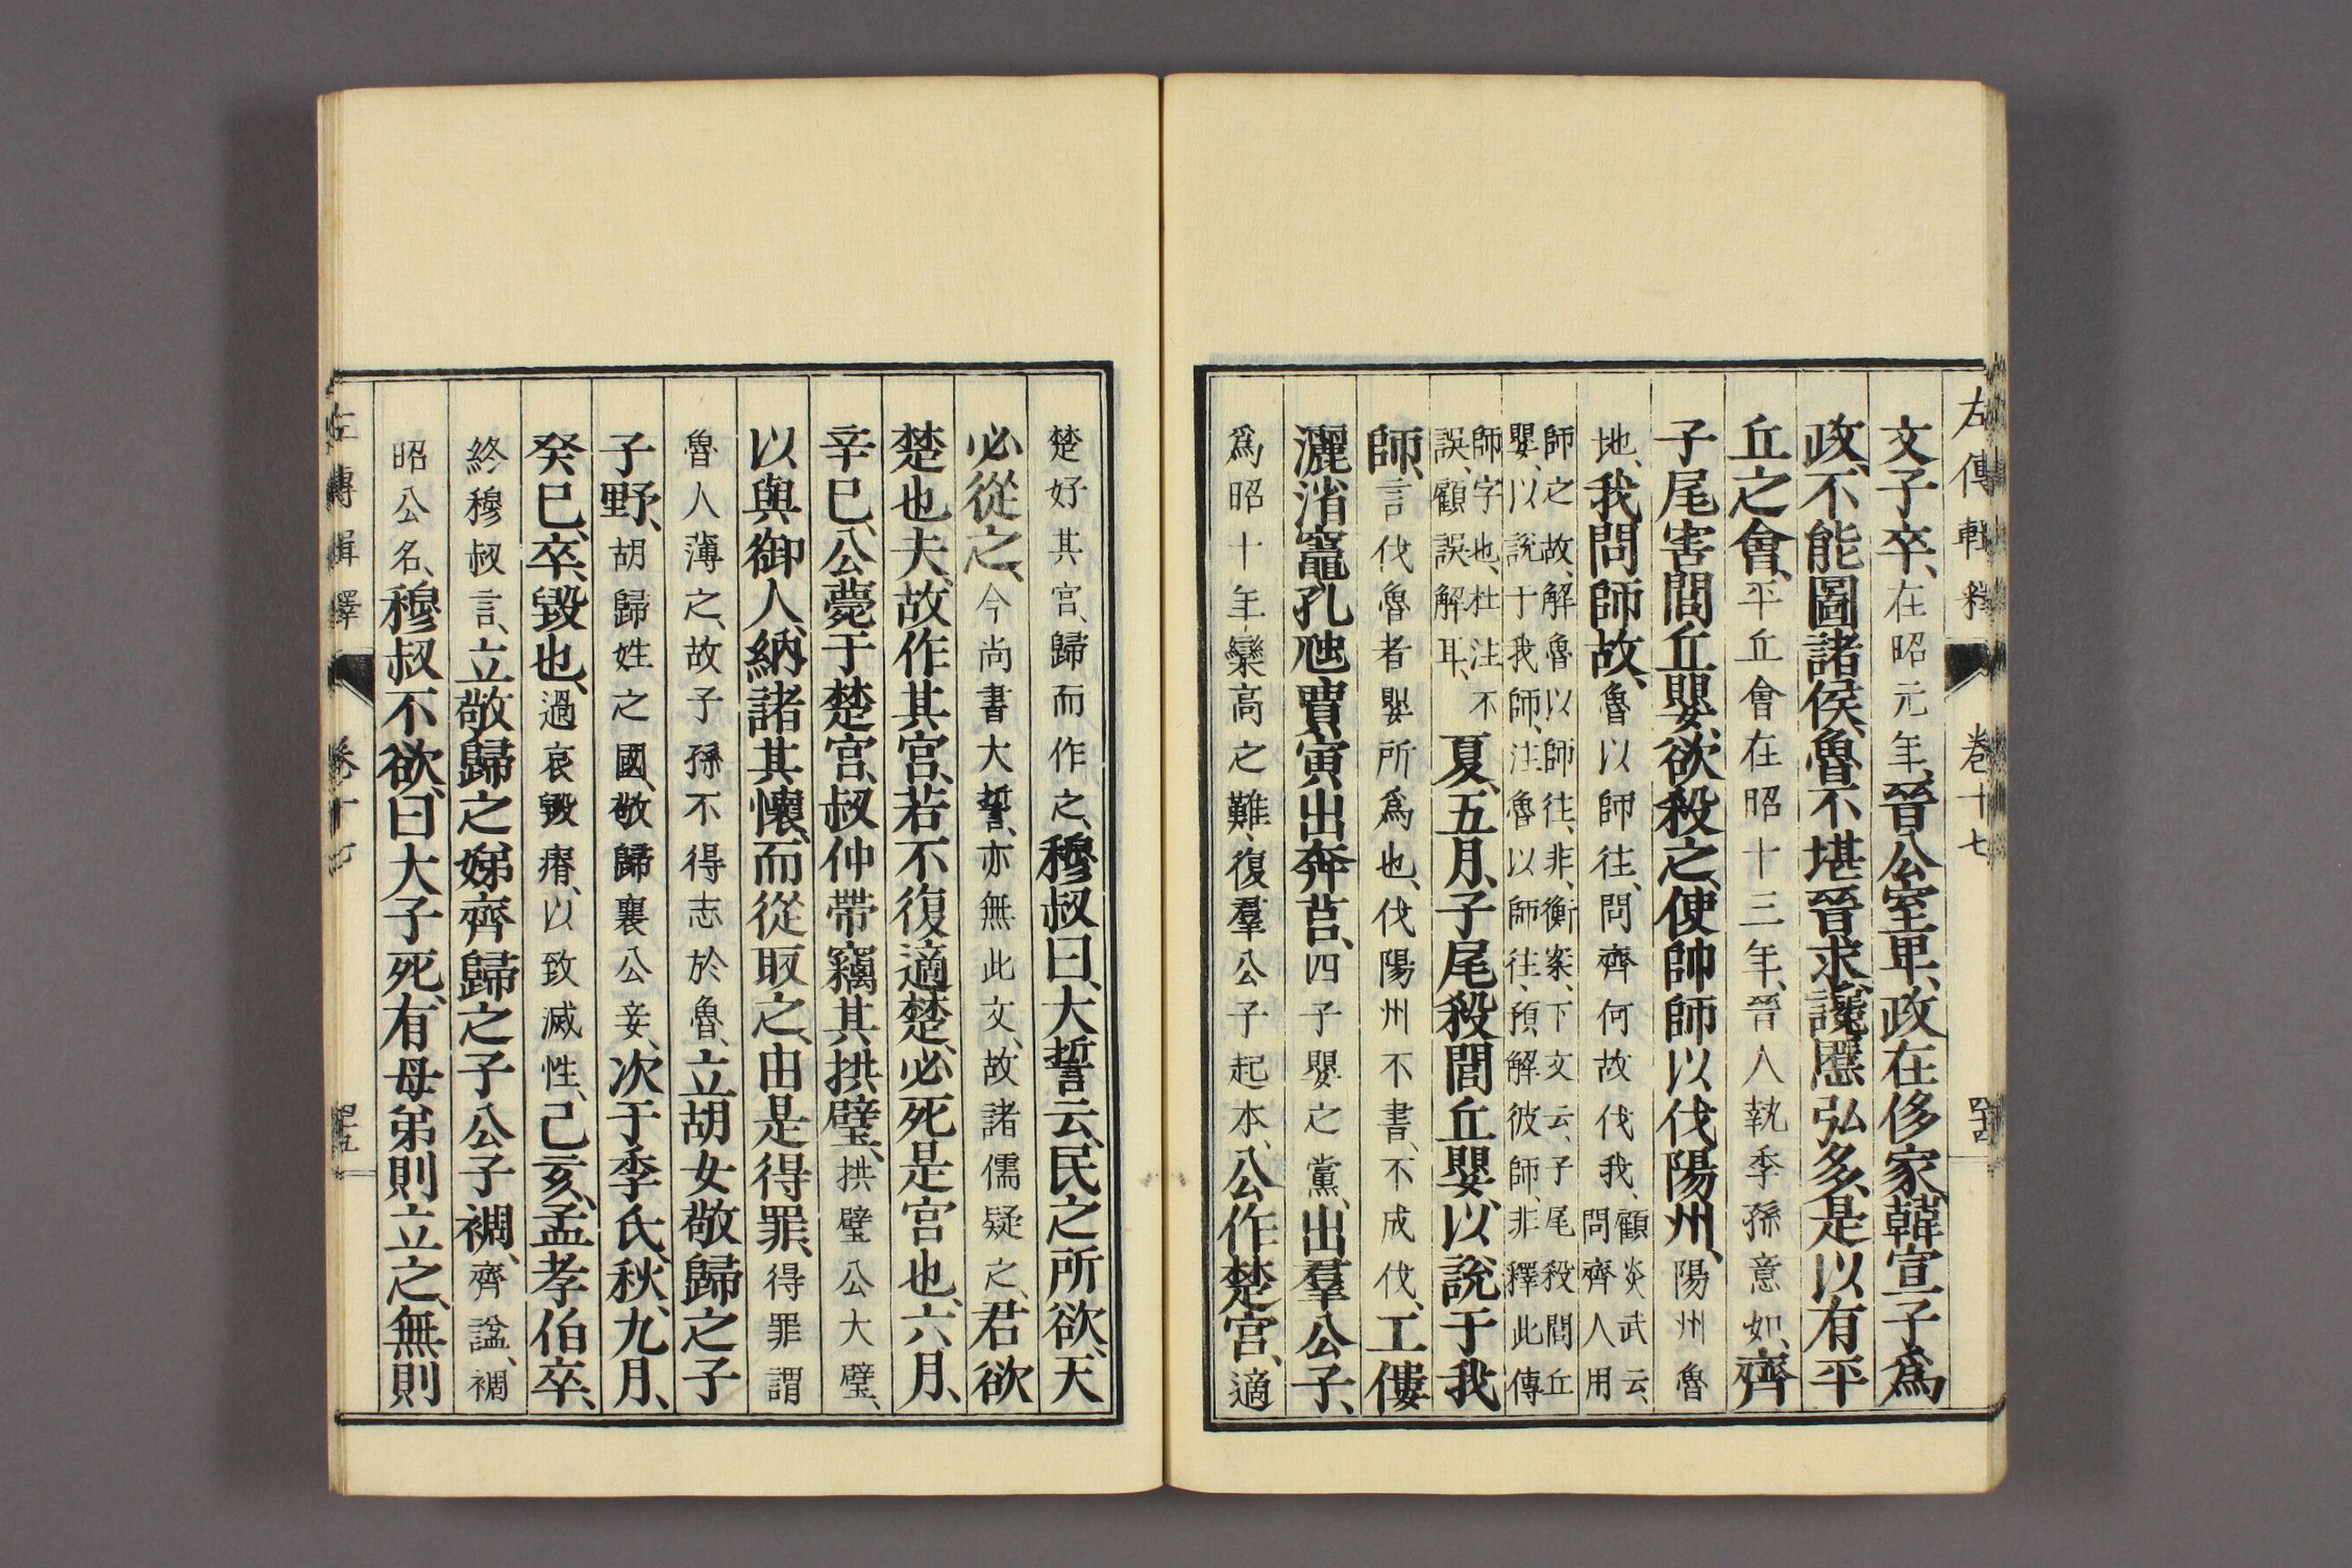 左傳輯釋 卷十七
文子卒、在昭元年、晉公室卑、政在侈家、韓宣子爲
政、不能圖諸侯、魯不堪晉求、讒慝弘多、是以有平
丘之會、平丘會在昭十三年、晉人執季孫意如、齊
子尾害閭丘嬰、欲殺之、使帥師以伐陽州、陽州魯
地、我問師故、魯以師往、問齊何故伐我、顧炎武云、問齊人用
師之故、解魯以師往、非、衡案、下文云、子尾殺閭丘
嬰、以說于我師、注魯以師往、預解彼師、非釋此傳
師字也、杜注不
誤、顧誤解耳、
夏、五月、子尾殺閭丘嬰、以說于我
師、言伐魯者嬰所爲也、伐陽州不書、不成伐、工僂
灑渻竈孔虺賈寅出奔莒、四子嬰之黨、出羣公子、
爲昭十年欒高之難、復羣公子起本、公作楚宮、適
楚好其宮、歸而作之、穆叔曰、大誓云、民之所欲、天
必從之、今尚書大誓、亦無此文、故諸儒疑之、君欲
楚也夫、故作其宮、若不復適楚、必死是宮也、六月、
辛巳、公薨于楚宮、叔仲帶竊其拱璧、拱璧公大璧、
以與御人、納諸其懷、而從取之、由是得罪、得罪謂
魯人薄之、故子孫不得志於魯、立胡女敬歸之子
子野、胡歸姓之國、敬歸襄公妾、次于季氏、秋、九月、
癸巳、卒、毀也、過哀毀瘠、以致滅性、己亥、孟孝伯卒、
終穆叔言、立敬歸之娣齊歸之子公子裯、齊謚、裯
昭公名、穆叔不欲、曰大子死、有母弟則立之、無則
左傳輯釋 卷十七